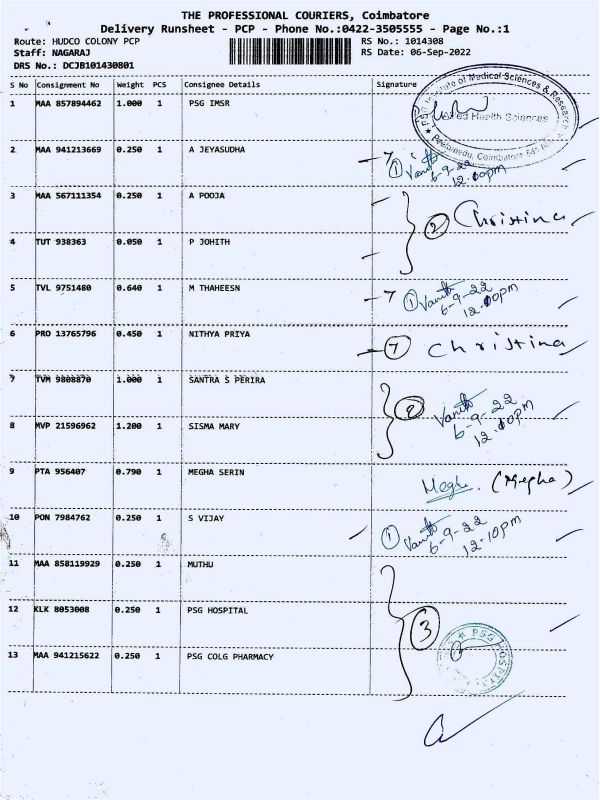 THE PROFESSIONAL COURIERS, Coimbatore
Delivery Runsheet - PCP - Phone No.:0422-3505555 - Page No.:1
Route: HUDCO COLONY PCP RS No.: 1014308
Staff: NAGARAJ RS Date: 06-Sep-2022
DRS No.: DCJB101430801
S No Consignment No Weight PCS Consignee Details Signature
PSG Institute of Medical Sciences & Research
Allied Health Sciences
Peelamedu, Coimbatore
1 MAA 857894462 1.000 1 PSG IMSR
2 MAA 941213669 0.250 1 A JEYASUDHA
1 Vanitha
6-9-22
12.00pm
3 MAA 567111354 0.250 1 A POOJA
2 Christina
4 TUT 938363 0.050 1 P JOHITH
5 TVL 9751480 0.640 1 M THAHEESN
1 Vanitha
6-9-22
12.00pm
6 PRO 13765796 0.450 1 NITHYA PRIYA
Christina
7 TVM 9808870 1.000 1 SANTRA S PERIRA
Vanitha
6-9-22
12.10pm
8 MVP 21596962 1.200 1 SISMA MARY
9 PTA 956407 0.790 1 MEGHA SERIN
Megha. (Megha)
10 PON 7984762 0.250 1 S VIJAY
1 Vanitha
6-9-22
12.10pm
11 MAA 858119929 0.250 1 MUTHU
12 KLK 8053008 0.250 1 PSG HOSPITAL
3
PSG HOSPITALS
13 MAA 941215622 0.250 1 PSG COLG PHARMACY